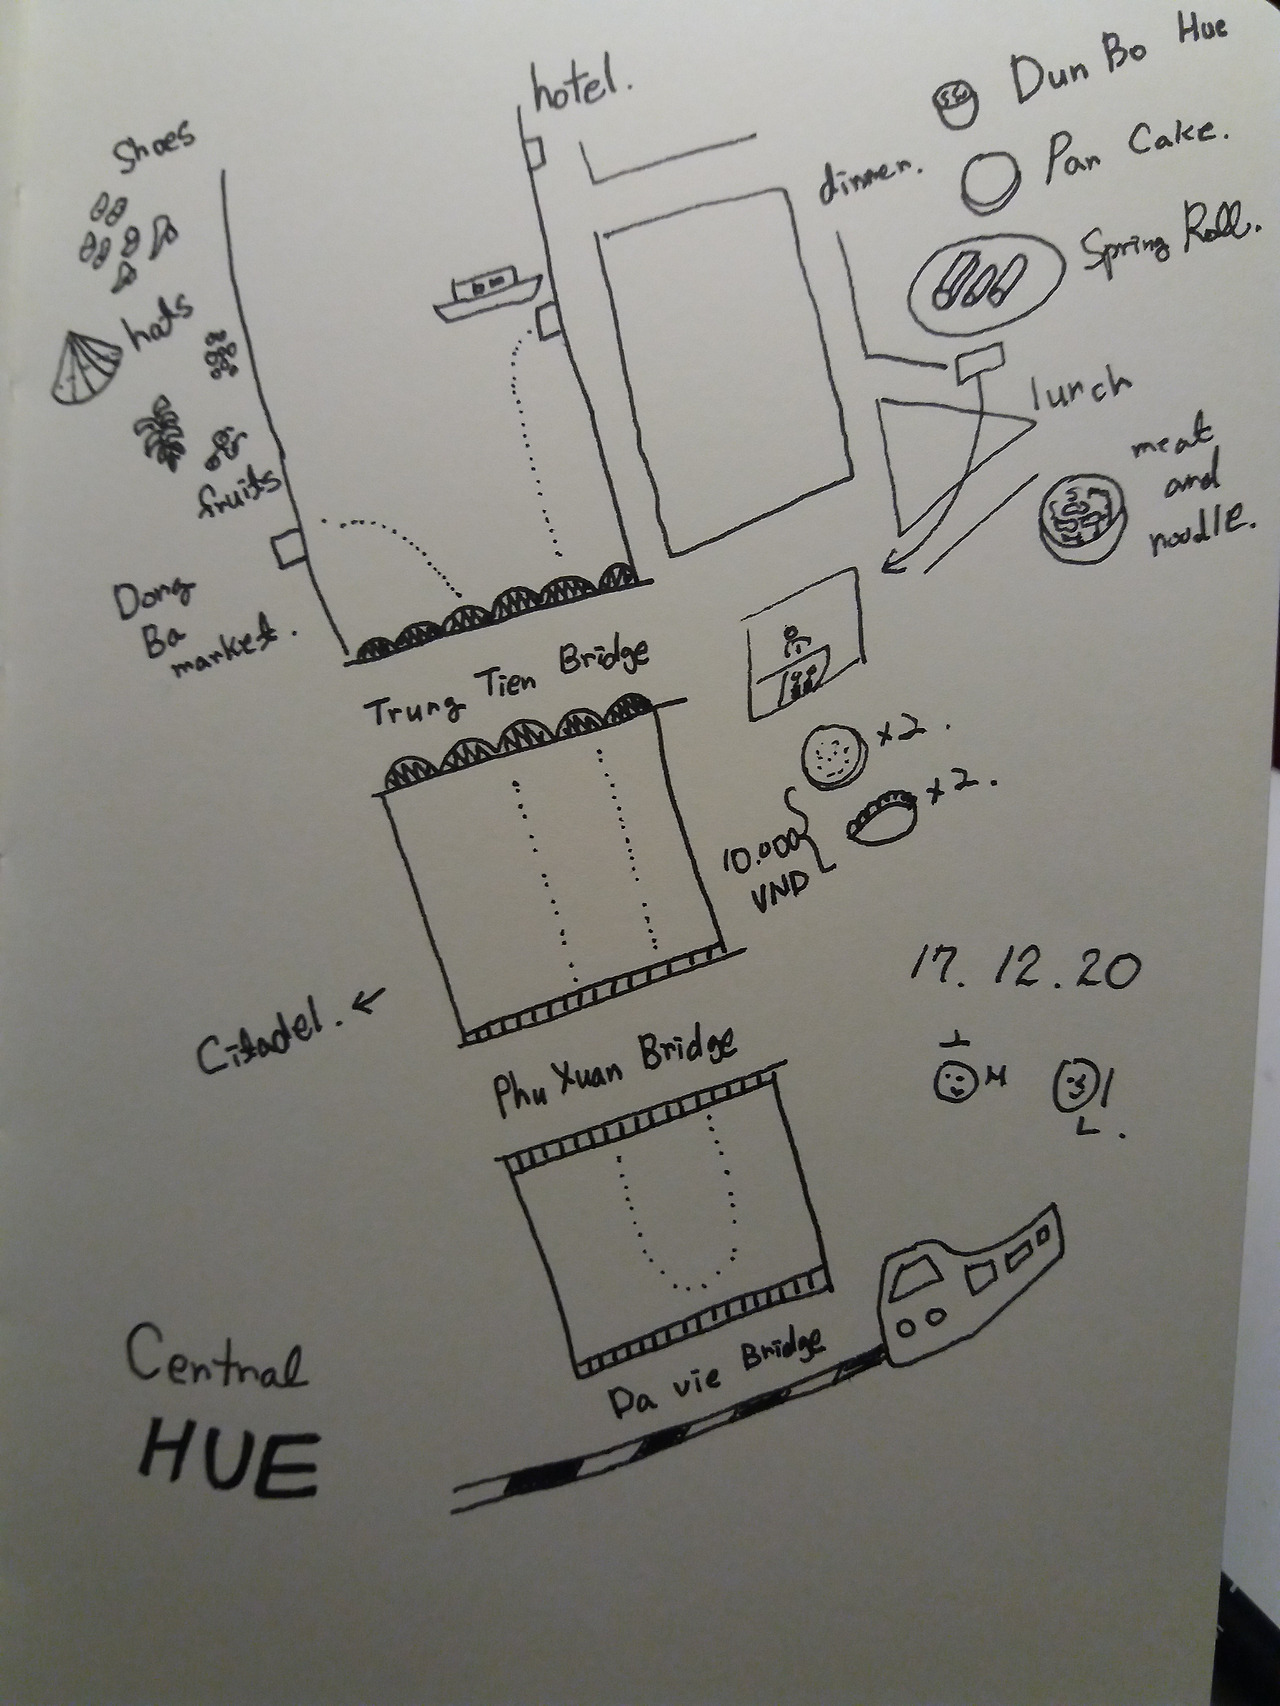 hotel.
Dun Bo Hue
Pan Cake.
dinner.
Spring Roll.
Shoes
hats
fruits
lunch
meat
and
noodle.
Dong
Ba
market.
Trung Tien Bridge
x2.
x2.
10.000
VND
17. 12. 20
Citadel. ←
Phu Xuan Bridge
Da vie Bridge
Central
HUE